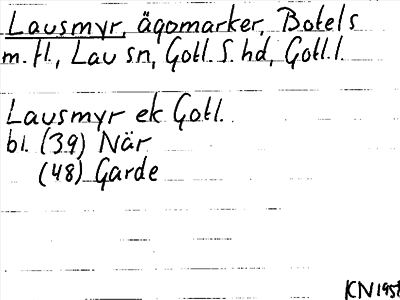 Lausmyr, ägomarker, Botels
m. fl., Lau sn, Gotl. S. hd, Gotl. l.
Lausmyr ek Gotl.
bl. (39) När
(48) Garde
KN 1958